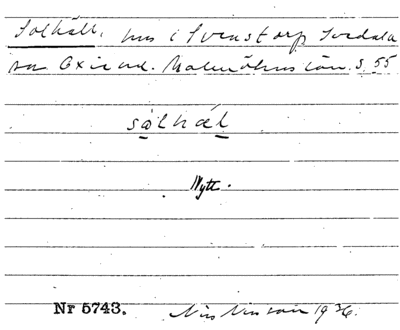 Solhäll, hus i Svenstorp Svedala
sn Oxie hd. Malmöhus län. S. 55
sǫlhæl
Nytt.
Nr 5743. Nils Nilsson 1936.